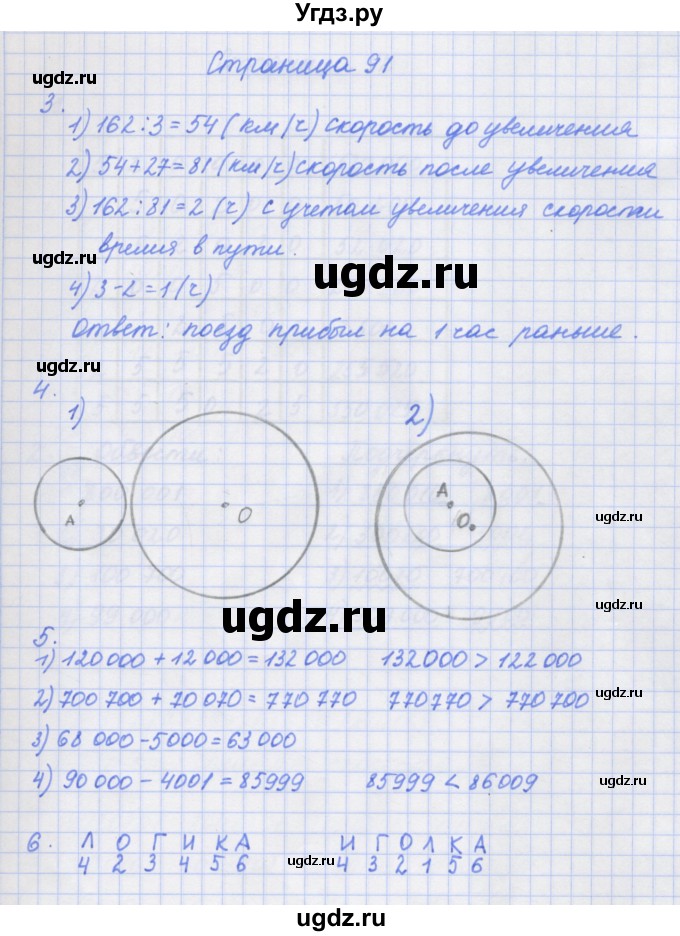 Угдз.ру
Страница 91
ugdz.ru
3.
1) 162:3=54 (км/ч) скорость до увеличения
2) 54+27=81 (км/ч) скорость после увеличения
ugdz.ru
3) 162:81=2 (ч) с учетом увеличения скорости
время в пути.
ugdz.ru
ugdz.ru
4) 3-2=1 (ч)
Ответ: поезд прибыл на 1 час раньше.
ugdz.ru
4.
1) 2)
А О А О
ugdz.ru
ugdz.ru
5.
1) 120 000 + 12 000 = 132 000 132 000 > 122 000
ugdz.ru
2) 700 700 + 70 070 = 770 770 770 770 > 770 700
ugdz.ru
3) 68 000 - 5000 = 63 000
4) 90 000 - 4001 = 85999 85999 < 86009
ugdz.ru
6. Л О Г И К А И Г О Л К А
4 2 3 4 5 6 4 3 2 1 5 6
ugdz.ru
ugdz.ru